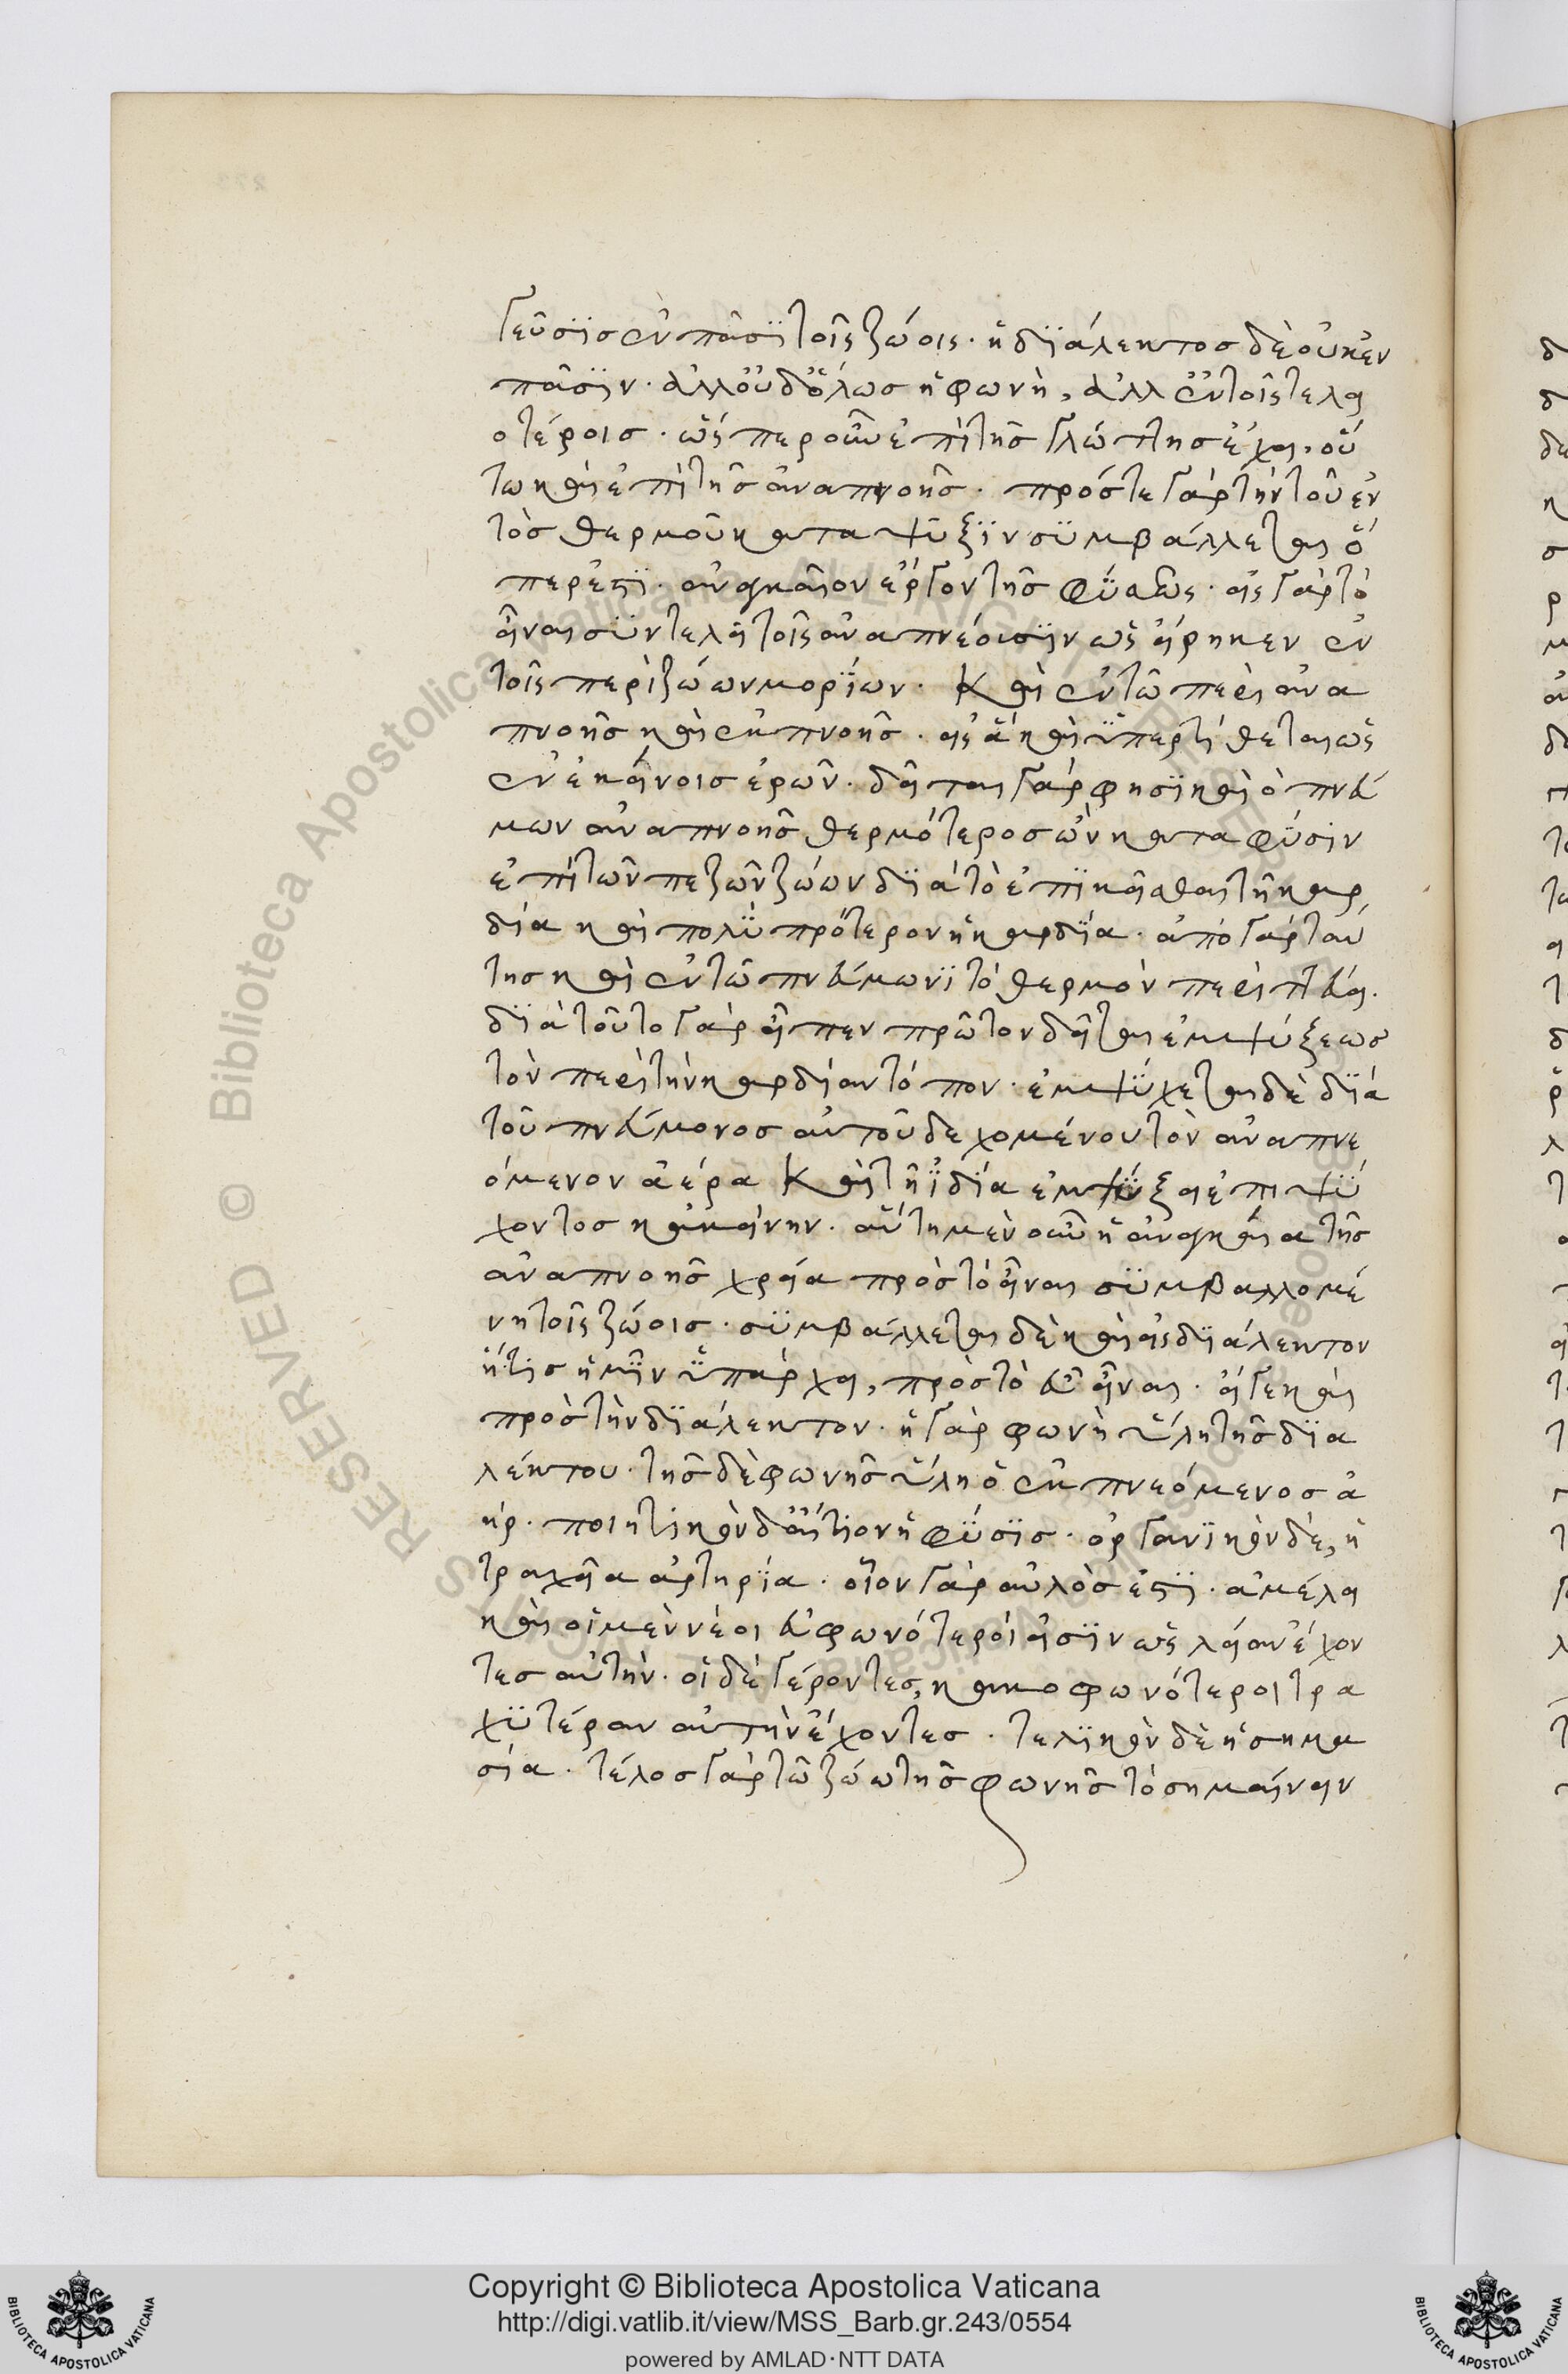 γεῦσϊς ἐν πᾶσϊ τοῖς ζώοις· ἡ δϊάλεκτος δὲ οὐκ ἐν
πᾶσϊν· ἀλλ' οὐδ' ὅλως ἡ φωνὴ, ἀλλ' ἐν τοῖς τελει
οτέροις· ὥσπερ οὖν ἐπὶ τῆς γλώττης ἔχει, οὕ
τω καὶ ἐπὶ τῆς ἀναπνοῆς· πρός τε γὰρ τὴν τοῦ ἐν
τὸς θερμοῦ κατάψυξϊν σϋμβάλλεται ὅ
περ ἐστϊ· ἀναγκαῖον ἔργον τῆς φϋσεως· εἰς γὰρ τὸ
εἶναι σϋντελεῖ τοῖς ἀναπνέουσϊν ὡς εἴρηκεν ἐν
τοῖς περὶ ζώων μορΐων· Καὶ ἐν τῶ περὶ ἀνα
πνοῆς καὶ ἐκπνοῆς· εἰς ἃ καὶ ὑπερτίθεται ὡς
ἐν ἐκείνοις ἐρῶν· δεῖται γάρ φησϊ καὶ ὁ πνεύ
μων ἀναπνοῆς θερμότερος ὢν κατὰ φϋσιν
ἐπὶ τῶν πεζῶν ζώων δϊὰ τὸ ἐπϊκεῖσθαι τῆ καρ
δία καὶ πολὺ πρότερον ἡ καρδΐα· ἀπὸ γὰρ ταύ
της καὶ ἐν τῶ πνεύμωνϊ τὸ θερμὸν περιττεύει·
δϊὰ τοῦτο γὰρ εἶπεν πρῶτον δεῖται ἐμψύξεως
τὸν περὶ τὴν καρδίαν τόπον· ἐμψϋχεται δὲ δϊὰ
τοῦ πνεύμονος αὐτοῦ δεχομένου τὸν ἀναπνε
όμενον ἀέρα Καὶ τῆ ἰδΐα ἐμψύξει ἐπιψϋ
χοντος κἀκείνην· αὕτη μὲν οὖν ἡ ἀναγκαία τῆς
ἀναπνοῆς χρεία πρὸς τὸ εἶναι σϋμβαλλομέ
νη τοῖς ζώοις· σϋμβάλλεται δὲ καὶ εἰς δϊάλεκτον
ἥτις ἡμῖν ὑπάρχει, πρὸς τὸ εὖ εἶναι· εἴγε καὶ
πρὸς τὴν δϊάλεκτον· ἡ γὰρ φωνὴ ὕλη τῆς δϊα
λέκτου· τῆς δὲ φωνῆς ὕλη ὁ ἐκπνεόμενος ἀ
ήρ· ποιητικὸν δ' αἴτιον ἡ φϋσϊς· ὀργανϊκὸν δὲ, ἡ
τραχεῖα ἀρτηρΐα· οἷον γὰρ αὐλὸς ἐστϊ· ἀμέλει
καὶ οἱ μὲν νέοι εὐφωνότεροί εἰσϊν ὡς λείαν ἔχον
τες αὐτήν· οἱ δὲ γέροντες, κακοφωνότεροι τρα
χϋτέραν αὐτὴν ἔχοντες· τελϊκὸν δὲ ἡ σημα
σία· τέλος γὰρ τῶ ζώω τῆς φωνῆς τὸ σημαίνειν
Copyright © Biblioteca Apostolica Vaticana
http://digi.vatlib.it/view/MSS_Barb.gr.243/0554
powered by AMLAD·NTT DATA